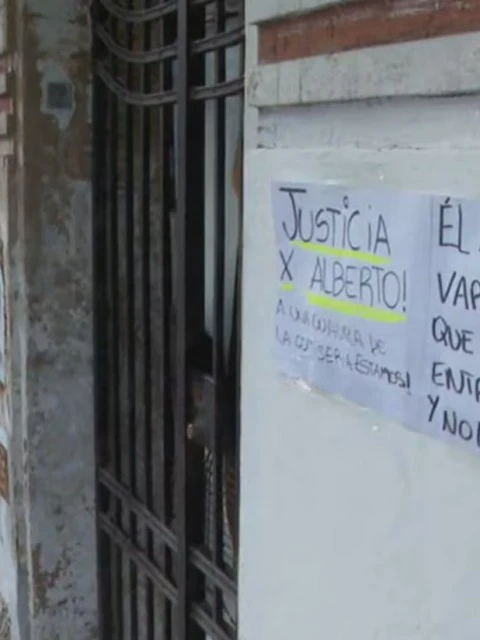 JUSTICIA
X ALBERTO!
A UNA CUADRA DE
LA COMISERÍA ESTAMOS!
ÉL
VAR
QUE
ENTR
Y NO